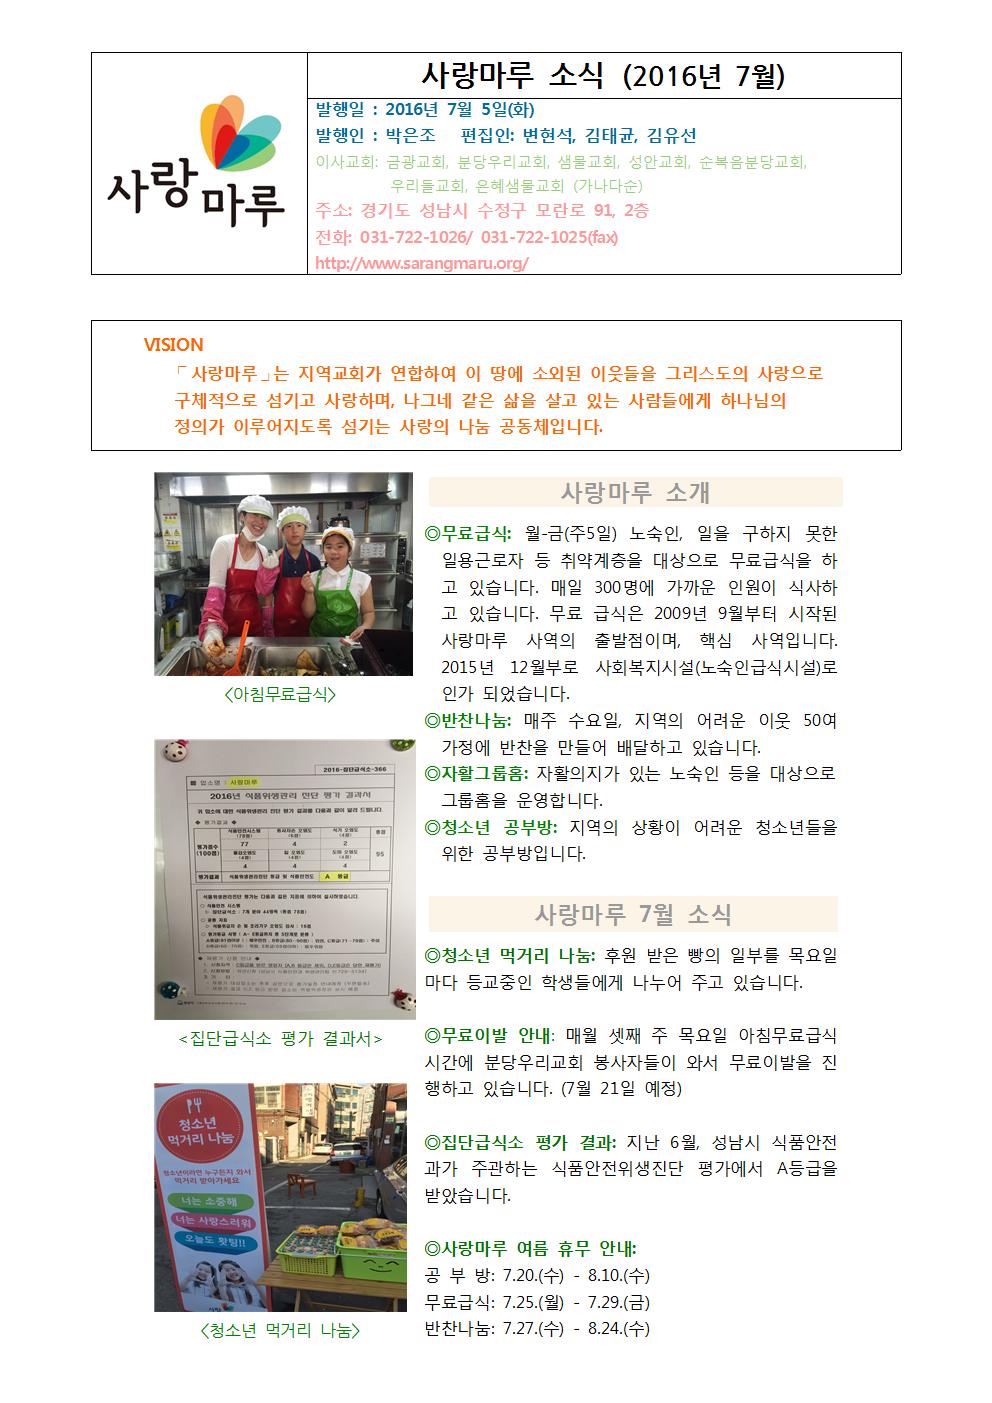 사랑마루
사랑마루 소식 (2016년 7월)
발행일 : 2016년 7월 5일(화)
발행인 : 박은조 편집인: 변현석, 김태균, 김유선
이사교회: 금광교회, 분당우리교회, 샘물교회, 성안교회, 순복음분당교회,
우리들교회, 은혜샘물교회 (가나다순)
주소: 경기도 성남시 수정구 모란로 91, 2층
전화: 031-722-1026/ 031-722-1025(fax)
http://www.sarangmaru.org/
VISION
「사랑마루」는 지역교회가 연합하여 이 땅에 소외된 이웃들을 그리스도의 사랑으로
구체적으로 섬기고 사랑하며, 나그네 같은 삶을 살고 있는 사람들에게 하나님의
정의가 이루어지도록 섬기는 사랑의 나눔 공동체입니다.
<아침무료급식>
2016-집단급식소-366
업소명 : 사랑마루
2016년 식품위생관리 진단 평가 결과서
귀 업소에 대한 식품위생관리 진단 평가 결과를 다음과 같이 알려 드립니다.
◆ 평가결과 ◆
평가점수
(100점)
총점
77 4 2
95
4 4 4
평가결과 식품위생관리진단 등급 및 식품안전도 A 등급
<집단급식소 평가 결과서>
청소년
먹거리 나눔
청소년이라면 누구든지 와서
먹거리 받아가세요
너는 소중해
너는 사랑스러워
오늘도 홧팅!!
<청소년 먹거리 나눔>
사랑마루 소개
◎무료급식: 월-금(주5일) 노숙인, 일을 구하지 못한
일용근로자 등 취약계층을 대상으로 무료급식을 하
고 있습니다. 매일 300명에 가까운 인원이 식사하
고 있습니다. 무료 급식은 2009년 9월부터 시작된
사랑마루 사역의 출발점이며, 핵심 사역입니다.
2015년 12월부로 사회복지시설(노숙인급식시설)로
인가 되었습니다.
◎반찬나눔: 매주 수요일, 지역의 어려운 이웃 50여
가정에 반찬을 만들어 배달하고 있습니다.
◎자활그룹홈: 자활의지가 있는 노숙인 등을 대상으로
그룹홈을 운영합니다.
◎청소년 공부방: 지역의 상황이 어려운 청소년들을
위한 공부방입니다.
사랑마루 7월 소식
◎청소년 먹거리 나눔: 후원 받은 빵의 일부를 목요일
마다 등교중인 학생들에게 나누어 주고 있습니다.
◎무료이발 안내: 매월 셋째 주 목요일 아침무료급식
시간에 분당우리교회 봉사자들이 와서 무료이발을 진
행하고 있습니다. (7월 21일 예정)
◎집단급식소 평가 결과: 지난 6월, 성남시 식품안전
과가 주관하는 식품안전위생진단 평가에서 A등급을
받았습니다.
◎사랑마루 여름 휴무 안내:
공 부 방: 7.20.(수) - 8.10.(수)
무료급식: 7.25.(월) - 7.29.(금)
반찬나눔: 7.27.(수) - 8.24.(수)